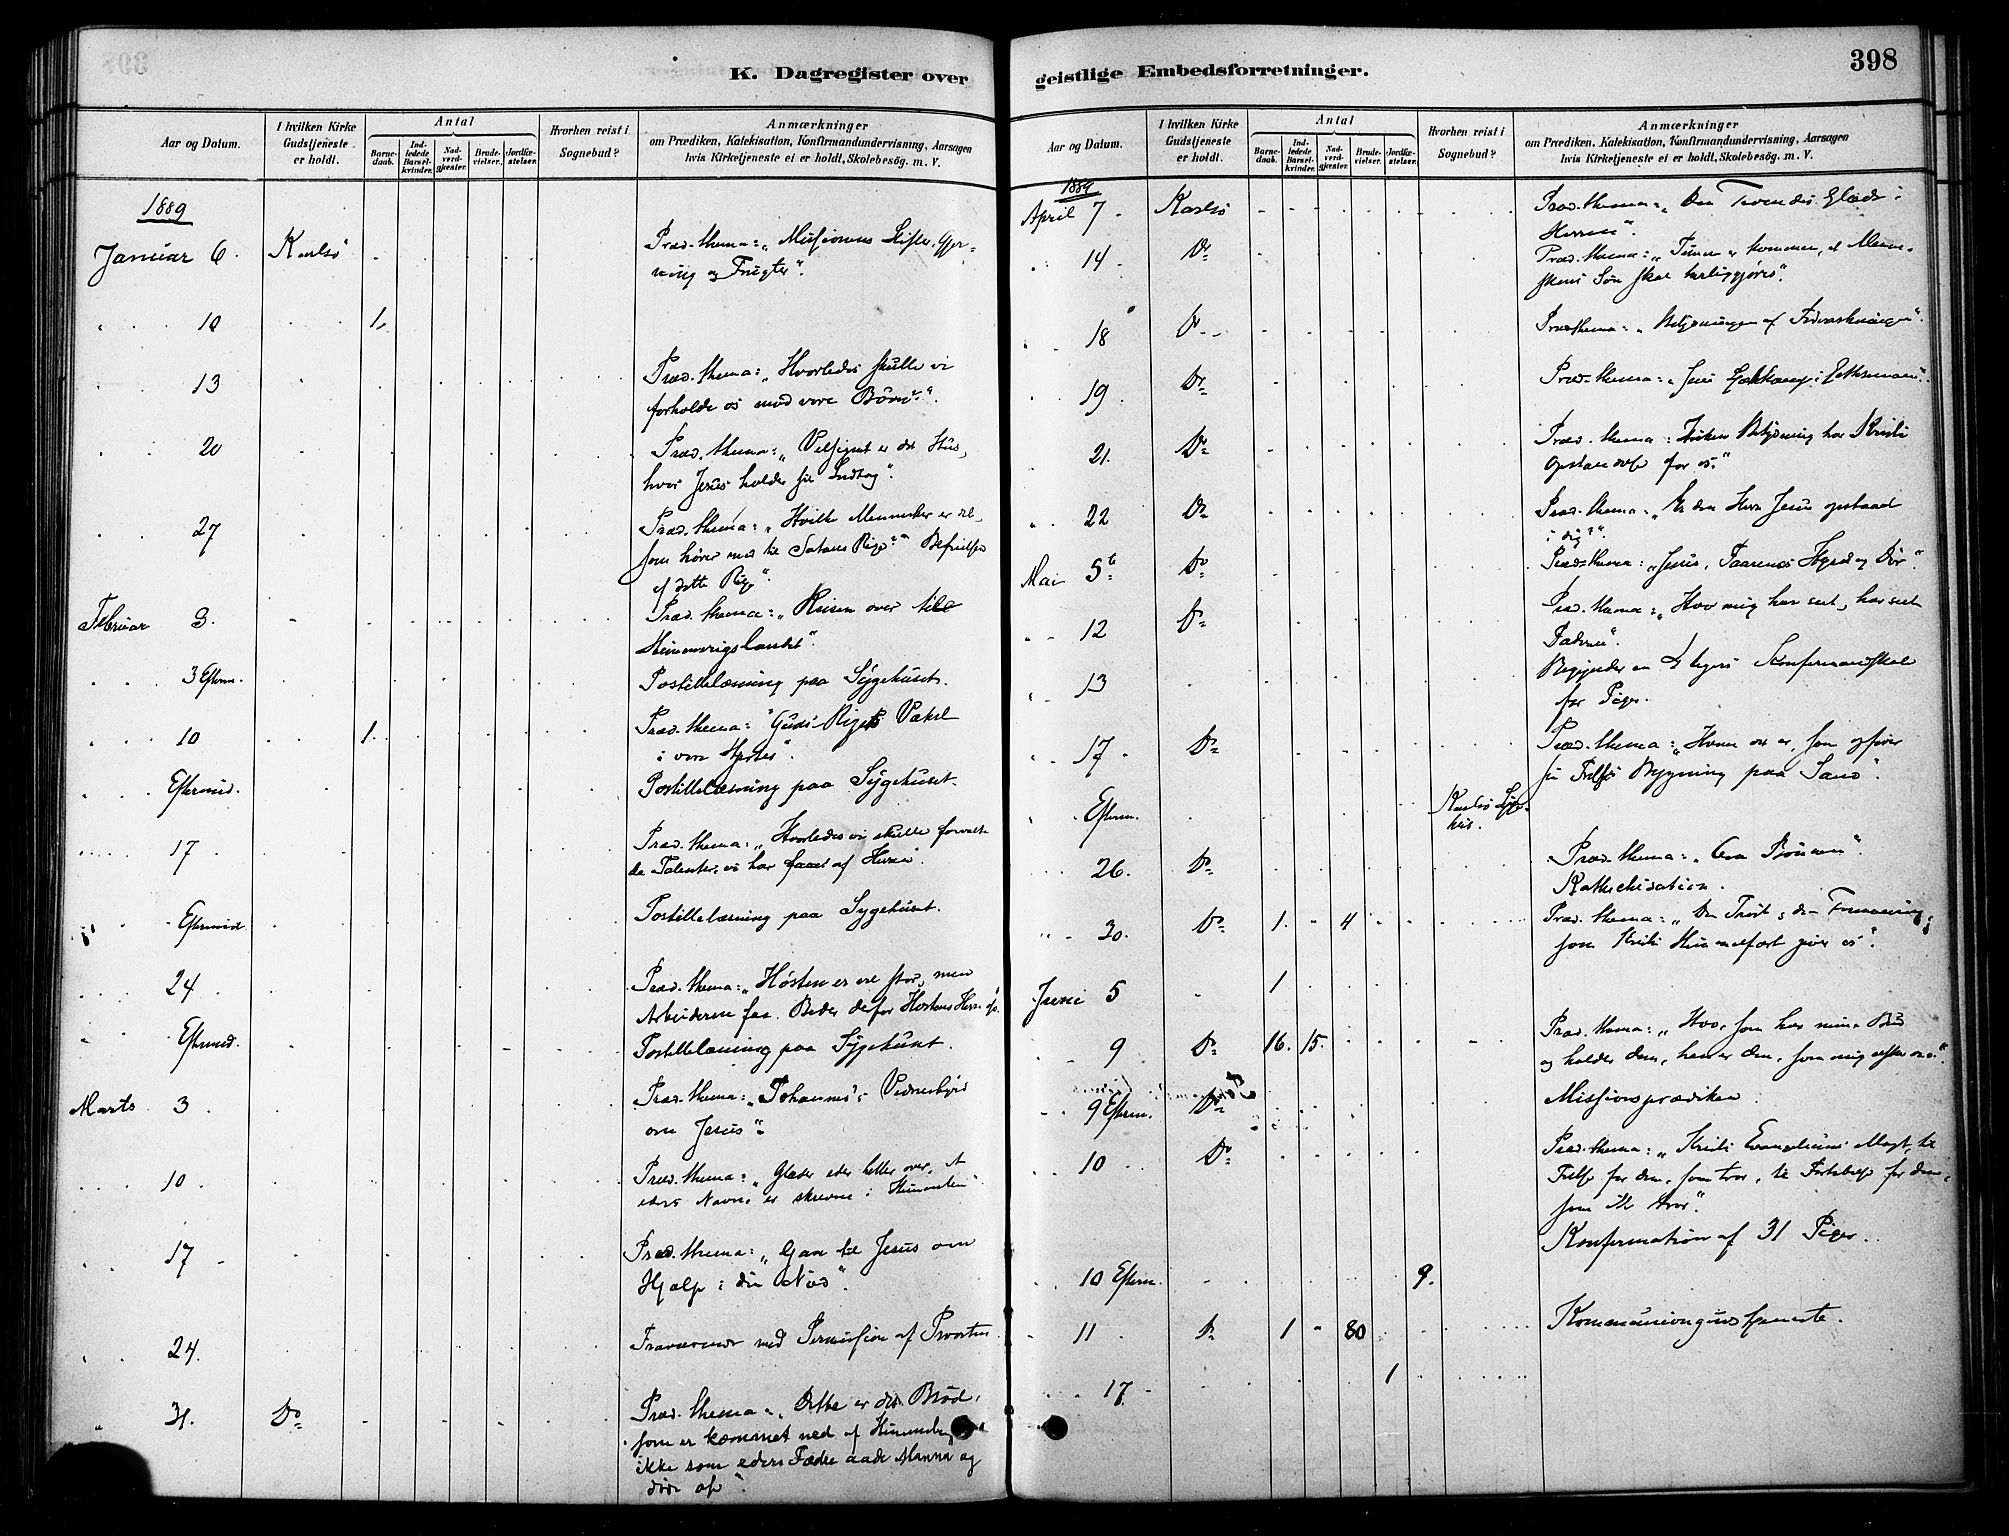 K. Dagregister over
Aar og Datum.
I hvilken Kirke
Gudstjeneste
er holdt.
Antal
Barne-
daab.
Ind-
ledede
Barsel-
kvinder.
Nad-
verd-
gjester.
Brude-
vielser.
Jordfæ-
stelser.
Hvorhen reist i
Sognebud?
Anmærkninger
om Prædiken, Katekisation, Konfirmandundervisning, Aarsagen
hvis Kirketjeneste ei er holdt, Skolebesøg. m. V.
1889
Januar 6. Karlsø Præd. thema: „Missionens Stifter, Gjer-
ning og Frugter“.
10 1.
13 Præd. thema: „Hvorledes skulle vi
forholde os mod vore Børn“.
20 Præd. thema: „Velsignet er det Hus,
hvor Jesus holder sit Indtog“.
27 Præd. thema: „Hvilke Mennesker er det,
som hører med til Satans Rige?“ Befrielse
af dette Rige“.
Februar 3. Præd. thema: „Reisen over til
Himmerigslandet“.
3 Efterm. Postillelæsning paa Sygehuset.
10 1. Præd. thema: „Guds Riges Vækst
i vore Hjerter“.
Eftermid. Postillelæsning paa Sygehuset.
17 Præd. thema: „Hvorledes vi skulle forvalte
de Talenter, vi har faaet af Herren“.
Eftermid. Postillelæsning paa Sygehuset.
24 Præd. thema: „Høsten er vel stor, men
Arbeiderne faa. Beder derfor Høstens Herre
Eftermid. Postillelæsning paa Sygehuset.
Marts 3. Præd. thema: „Johannes's Vidnesbyrd
om Jesus“.
10 Præd. thema: „Glæder eder heller over, at
eders Navne er skrevne i Himmelen“.
17 Præd. thema: „Gaa til Jesus om
Hjælp i din Nød“.
24. Fraværende med Permission af Provsten
31. Do Præd. thema: „Dette er det Brød,
som er kommet ned af Himmelen
ikke som eders Fædre aade Manna og
døde af“.
geistlige Embedsforretninger.
398
Aar og Datum.
I hvilken Kirke
Gudstjeneste
er holdt.
Antal
Barne-
daab.
Ind-
ledede
Barsel-
kvinder.
Nad-
verd-
gjester.
Brude-
vielser.
Jordfæ-
stelser.
Hvorhen reist i
Sognebud?
Anmærkninger
om Prædiken, Katekisation, Konfirmandundervisning, Aarsagen
hvis Kirketjeneste ei er holdt, Skolebesøg. m. V.
1889
April 7. Karlsø Præd. thema: „Den Troendes Glæde i
Herren“.
14 Do Præd. thema: „Timen er kommen, at Menne-
skens Søn skal herliggjøres“.
18 Do Præd. thema: „Betydningen af Fodvaskningen“.
19. Do Præd. thema: „Jesu i Gethsemane“.
21. Do Præd. thema: Hvilken Betydning har Kristi
Opstandelse for os.“
22 Do Præd. thema: „Er den Herre Jesus opstaaet
i dig?“
Mai 5te Do Præd. thema: „Jesus, Faarenes Hyrde og Dør“.
12 Do Præd. thema: „Hvo mig har seet, har seet
Faderen“.
13 Begynder en Konfirmandskole
for Piger.
17 Do Præd. thema: „Hvem det er, som opfører
sin Frelses Bygning paa Sand“.
Efterm. Karlsø Syge-
hus.
26. Do Præd. thema: „Om Bønnen“.
Kathechisation.
30. Do 1. 4 Præd. thema: „Den Trøst & den Formaning,
som Kristi Himmelfart giver os“.
Juni 5 1
9 Do 16. 15. Præd. thema: „Hvo, som har mine Bud
og holder dem, han er den, som mig elsker“.
9 Efterm. Do Missionsprædiken
10 Do Præd. thema: „Kristi Evangeliums Magt, til
Frelse for dem, som tror, til Fortabelse for dem,
som ikke tror“.
Konfirmation af 31 Piger.
10 Efterm. 9.
11 Do 1 80 Kommuniongudstjeneste.
17 1